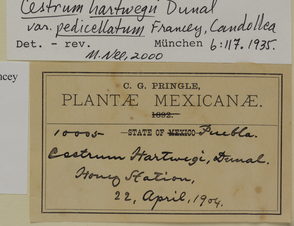 Cestrum hartwegii Dunal
var. pedicellatum Francey, Candollea
Det. - rev. München 6:117. 1935.
M. Nee, 2000
ncey
C. G. PRINGLE,
PLANTÆ MEXICANÆ.
1892.
10005 STATE OF MEXICO Puebla.
Cestrum Hartwegi, Dunal.
Honey Station,
22, April, 1904.